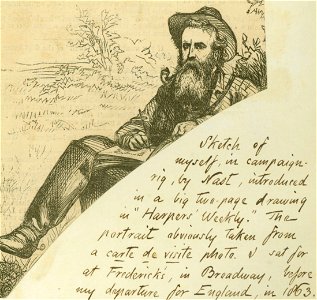 Sketch of
myself, in campaign-
rig, by Nast, introduced
in a big two-page drawing
in "Harpers' Weekly." The
portrait obviously taken from
a carte de visite photo. I sat for
at Fredericks', in Broadway, before
my departure for England, in 1863.